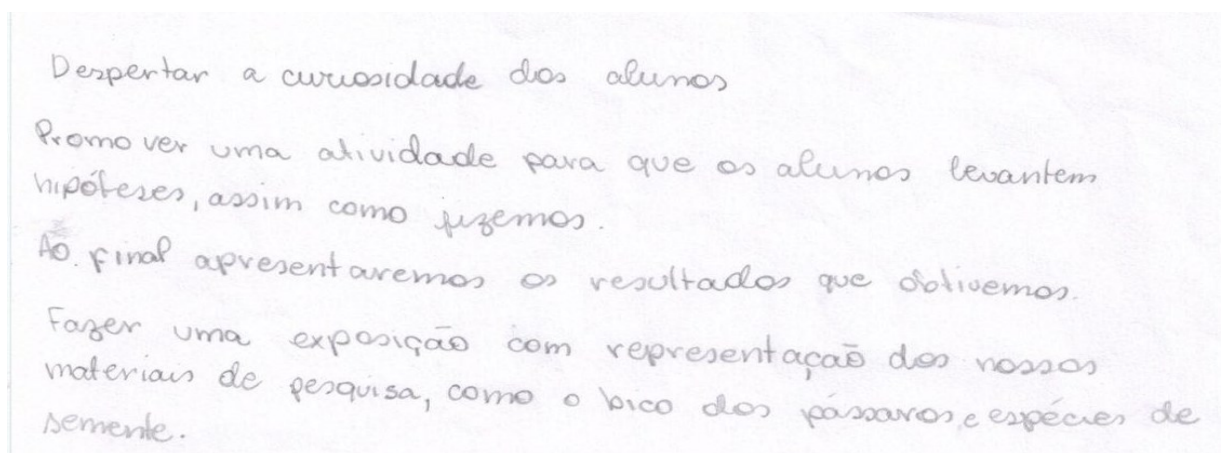 Despertar a curiosidade dos alunos
Promover uma atividade para que os alunos levantem
hipóteses, assim como fizemos.
Ao final apresentaremos os resultados que obtivemos.
Fazer uma exposição com representação dos nossos
materiais de pesquisa, como o bico dos pássaros, e espécies de
semente.